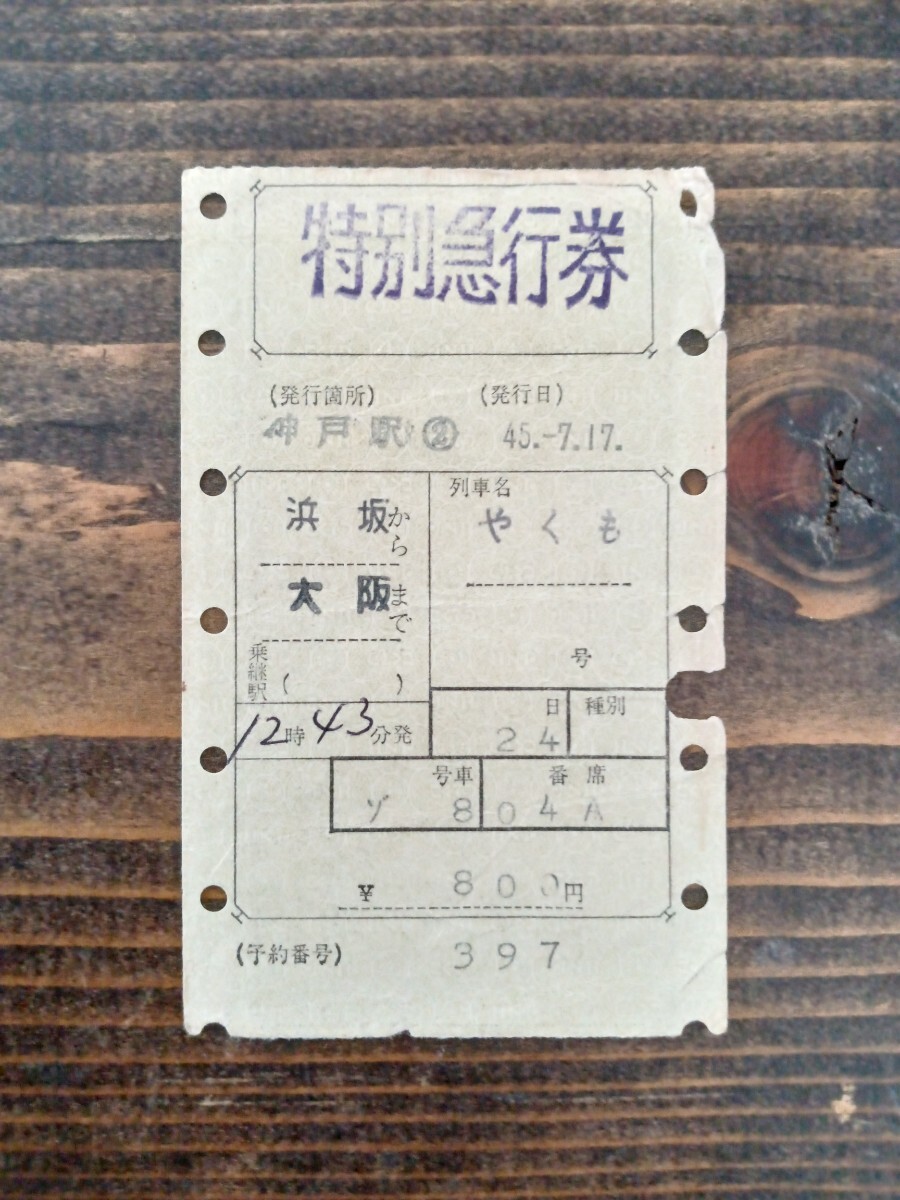 特別急行券
(発行箇所) (発行日)
神戸駅② 45.-7.17.
浜坂から
大阪まで
乗継駅( )
12時43分発
列車名
やくも
号
日 種別
24
号車 番席
ゾ 8 04A
¥ 800円
(予約番号) 397